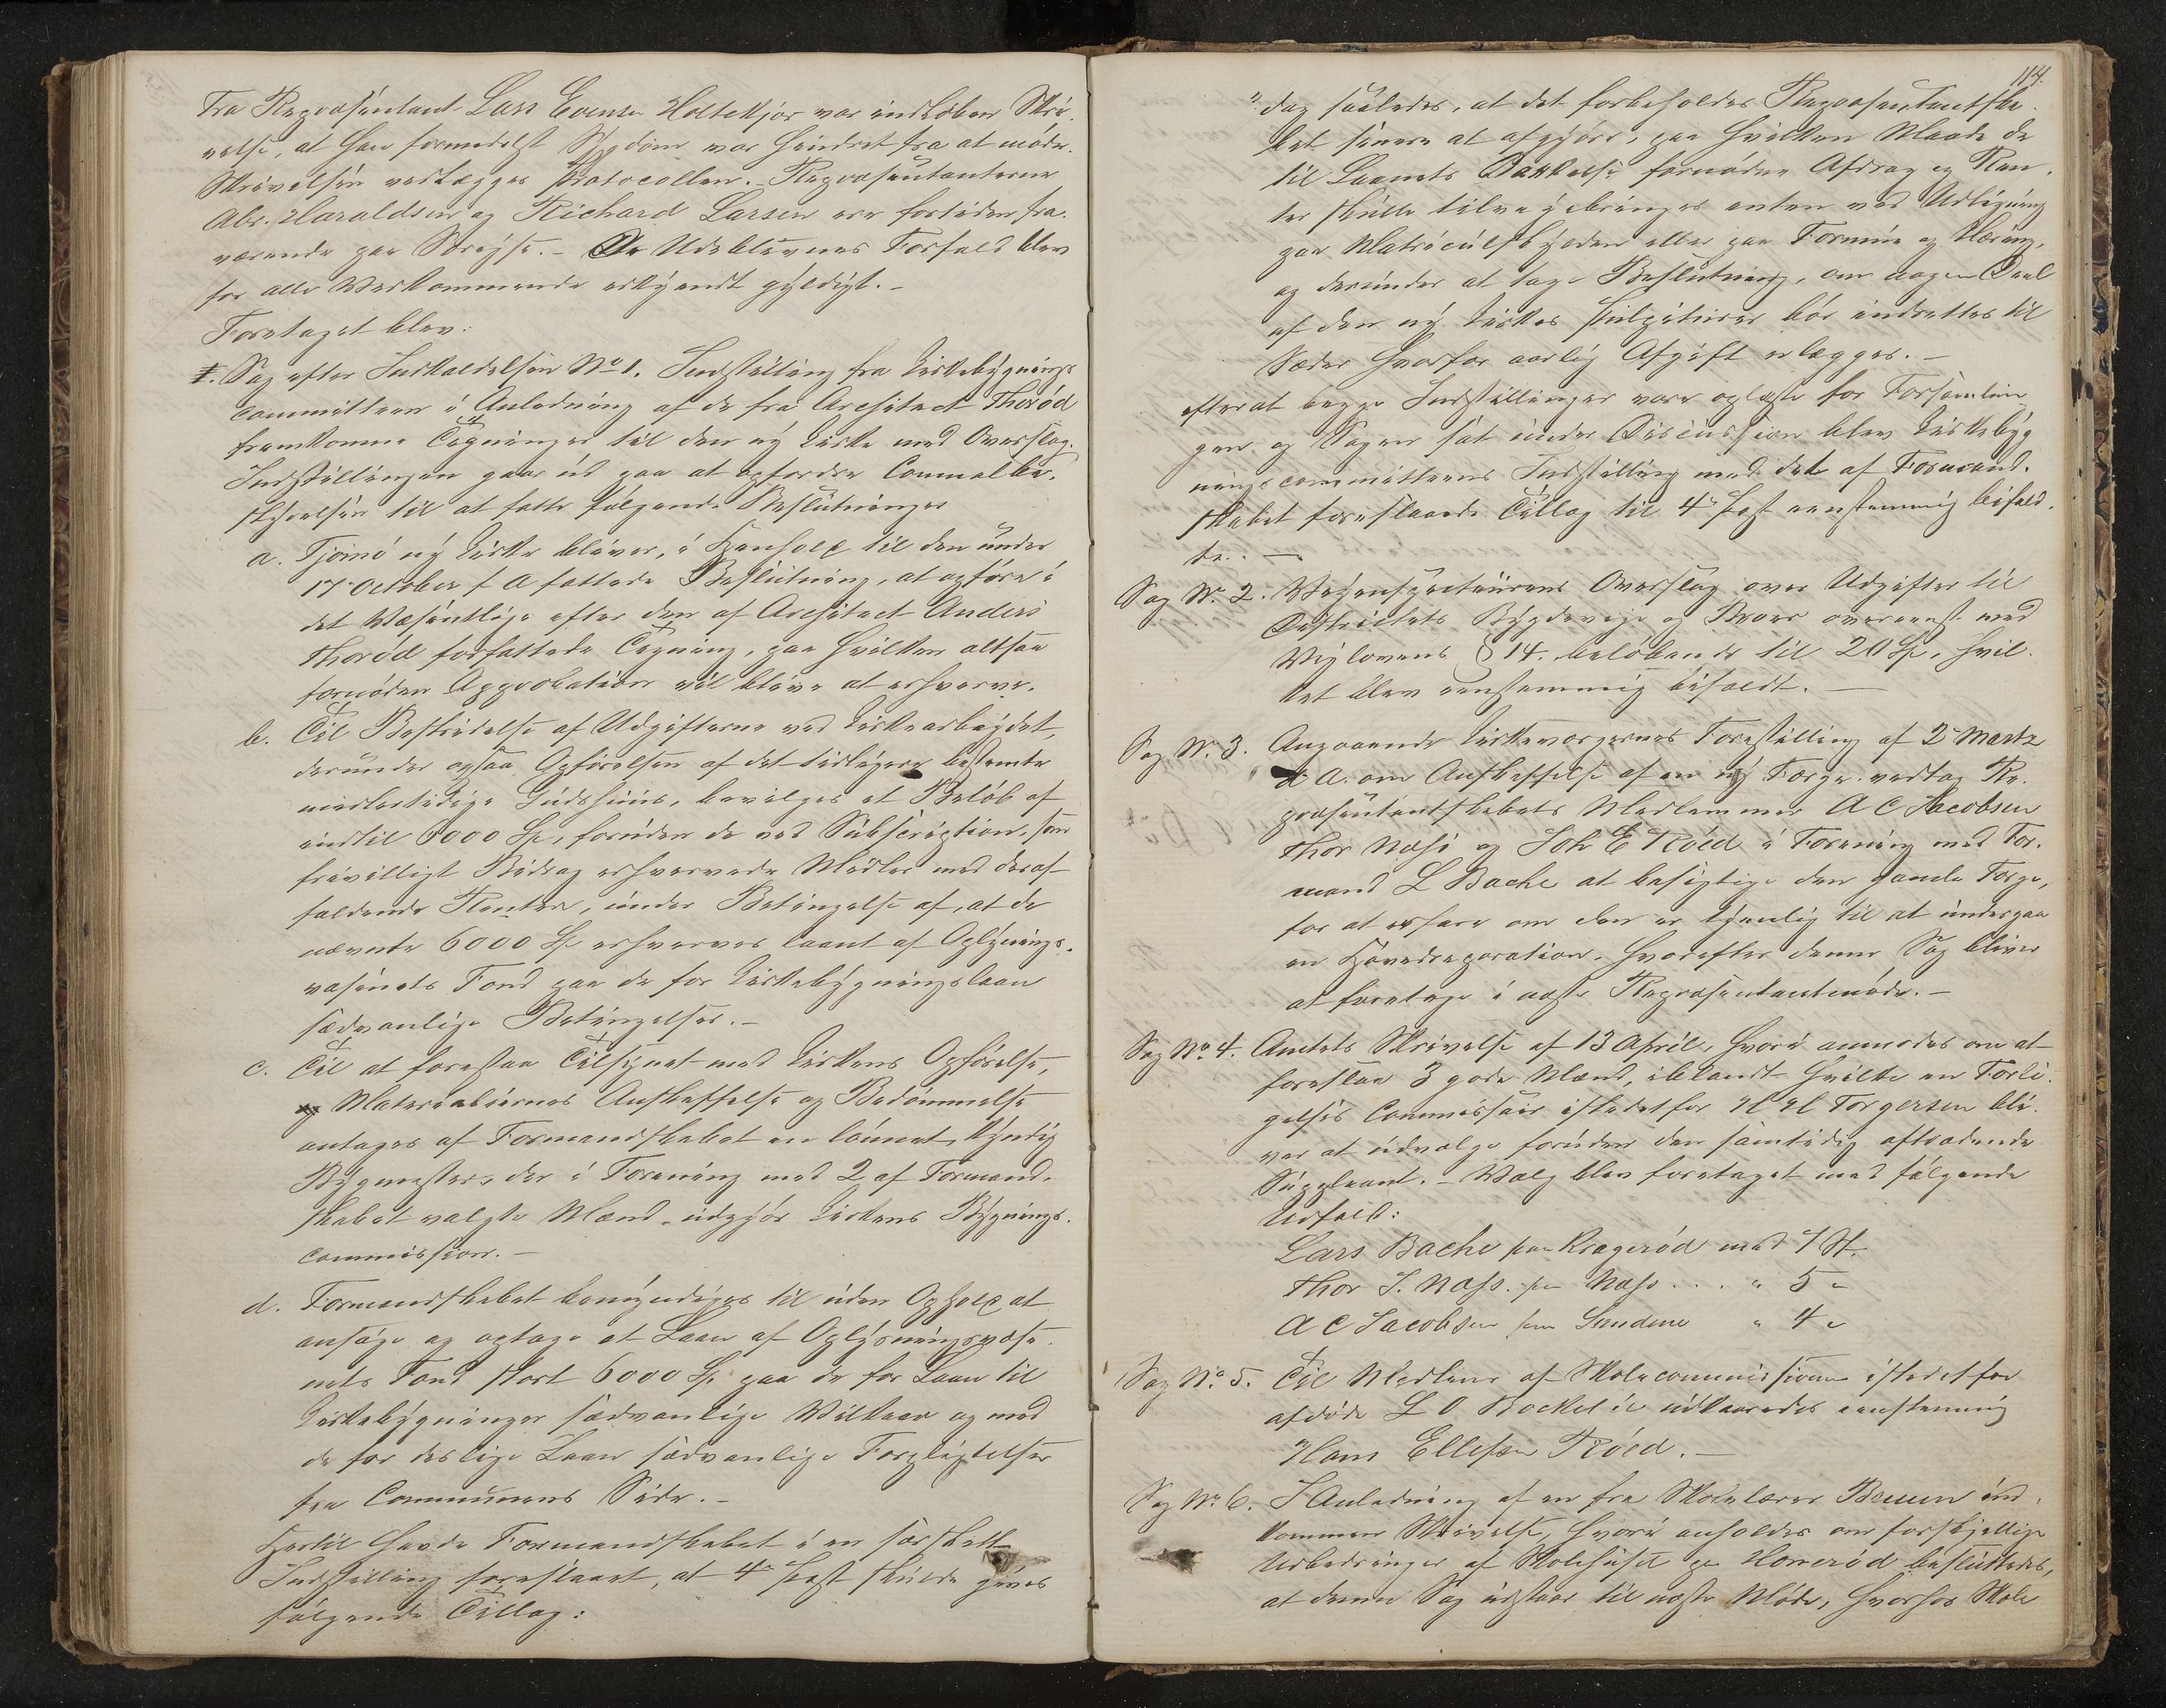 Fra Repræsentant Lars Evensen Holtekjær var indløben Skri-
velse, at han formedelst Sygdom var hindret fra at møde.
Skrivelsen vedlægges Protocollen. – Repræsentanterne
Abr. Haraldsen og Richard Larsen ere fortiden fra-
værende paa Søreise. – De Udeblevnes Forfald blev
for alle Vedkommende erkjendt gyldigt. –
Foretaget blev:
I. Sag efter Indkaldelsen No 1. Indstilling fra Kirkebygnings
committeen i Anledning af de fra Architect Thorød
fremkomne Tegninger til den ny Kirke med Overslag.
Indstillingen gaar ud paa at opfordre Communalbe-
styrelsen til at fatte følgende Beslutninger
a. Tjømø ny Kirke bliver, i Henhold til den under
17 October f A fattede Beslutning, at opføre i
det Væsentlige efter den af Architect Anders
Thorød forfattede Tegning, paa hvilken altsaa
fornøden Approbation vil blive at erhverve.
b. Til Bestridelse af Udgifterne ved Kirkearbeidet,
derunder ogsaa Opførelsen af det tidligere bestemte
midlertidige Gudshuus, bevilges et Beløb af
indtil 6000 Sp, foruden de ved Subscription, som
frivilligt Bidrag erhvervede Midler med deraf
faldende Renter, under Betingelse af, at de
nævnte 6000 Sp erhverves laant af Oplysnings-
væsenets Fond paa de for Kirkebygningslaan
sædvanlige Betingelser. –
c. Til at forestaa Tilsynet med Kirkens Opførelse,
Materialiernes Anskaffelse og Bedømmelse
antages af Formandskabet en lønnet, kyndig
Bygmester, der i Forening med 2 af Formand-
skabet valgte Mænd udgjør Kirkens Bygnings-
commission. –
d. Formandskabet bemyndiges til uden Ophold at
ansøge og optage et Laan af Oplysningsvæse-
nets Fond stort 6000 Sp paa de for Laan til
Kirkebygninger sædvanlige Vilkaar og med
de for deslige Laan sædvanlige Forpligtelser
fra Communens Side. –
Hertil havde Formandskabet i en særskilt
Indstilling foreslaaet, at 4de Post skulde gives
følgende Tillæg:
114.
"dog saaledes, at det forbeholdes Repræsentantska-
bet senere at afgjøre, paa hvilken Maade de
til Laanets Dækkelse fornødne Afdrag og Ren-
ter skulle tilveiebringes enten ved Udligning
paa Matriculskylden eller paa Formue og Næring,
og derunder at tage Beslutning, om nogen Deel
af den ny Kirkes Pulpiturer bør indrettes til
Sæder hvorfor aarlig Afgift erlægges. –
efterat begge Indstillinger vare oplæste for Forsamlin-
gen og Sagen sat under Discussion blev Kirkebyg
ningscommitteens Indstilling med det af Formand-
skabet foreslaaede Tillæg til 4de Post eenstemmig bifald-
te. –
Sag No. 2. Veiinspecteurens Overslag over Udgifter til
Districtets Bygdeveie og Broer overeenst. med
Veilovens § 14. beløbende til 20 Sp, hvil-
ket blev eenstemmig bifaldt. –
Sag No. 3. Angaaende Kirkeværgernes Forestilling af 2 Martz
d. A. om Anskaffelse af en ny Færge vedtog Re-
præsentantskabets Medlemmer A C Jacobsen
Thor Næss og Joh E Røed i Forening med For-
mand L Bache at besigtige den gamle Færge,
for at erfare om den er tjenlig til at undergaa
en Hovedreparation. Hvorefter denne Sag bliver
at foretage i næste Repræsentantmøde. –
Sag No. 4. Amtets Skrivelse af 13 April, hvori anmodes om at
foreslaa 3 gode Mænd, iblandt hvilke en Forli-
gelses Commissair istedetfor H H Torgersen bli-
ver at udvælge foruden den samtidig aftrædende
Suppleant. – Valg blev foretaget med følgende
Udfald:
Lars Bache paa Kragerød med 7 St.
Thor J. Næss. paa Næss . . . " 5 "
A C Jacobsen paa Sundene " 4 "
Sag No. 5. Til Medlem af Skolecommissionen istedetfor
afdøde L O Bockelie udkaaredes eenstemmig
Hans Ellefsen Røed. –
Sag No. 6. I Anledning af en fra Skolelærer Bruun ind-
kommen Skrivelse, hvori anholdes om forskjellige
Udbedringer af Skolehuset paa Honerød besluttedes,
at denne Sag udstaar til næste Møde, hvorhos Skole